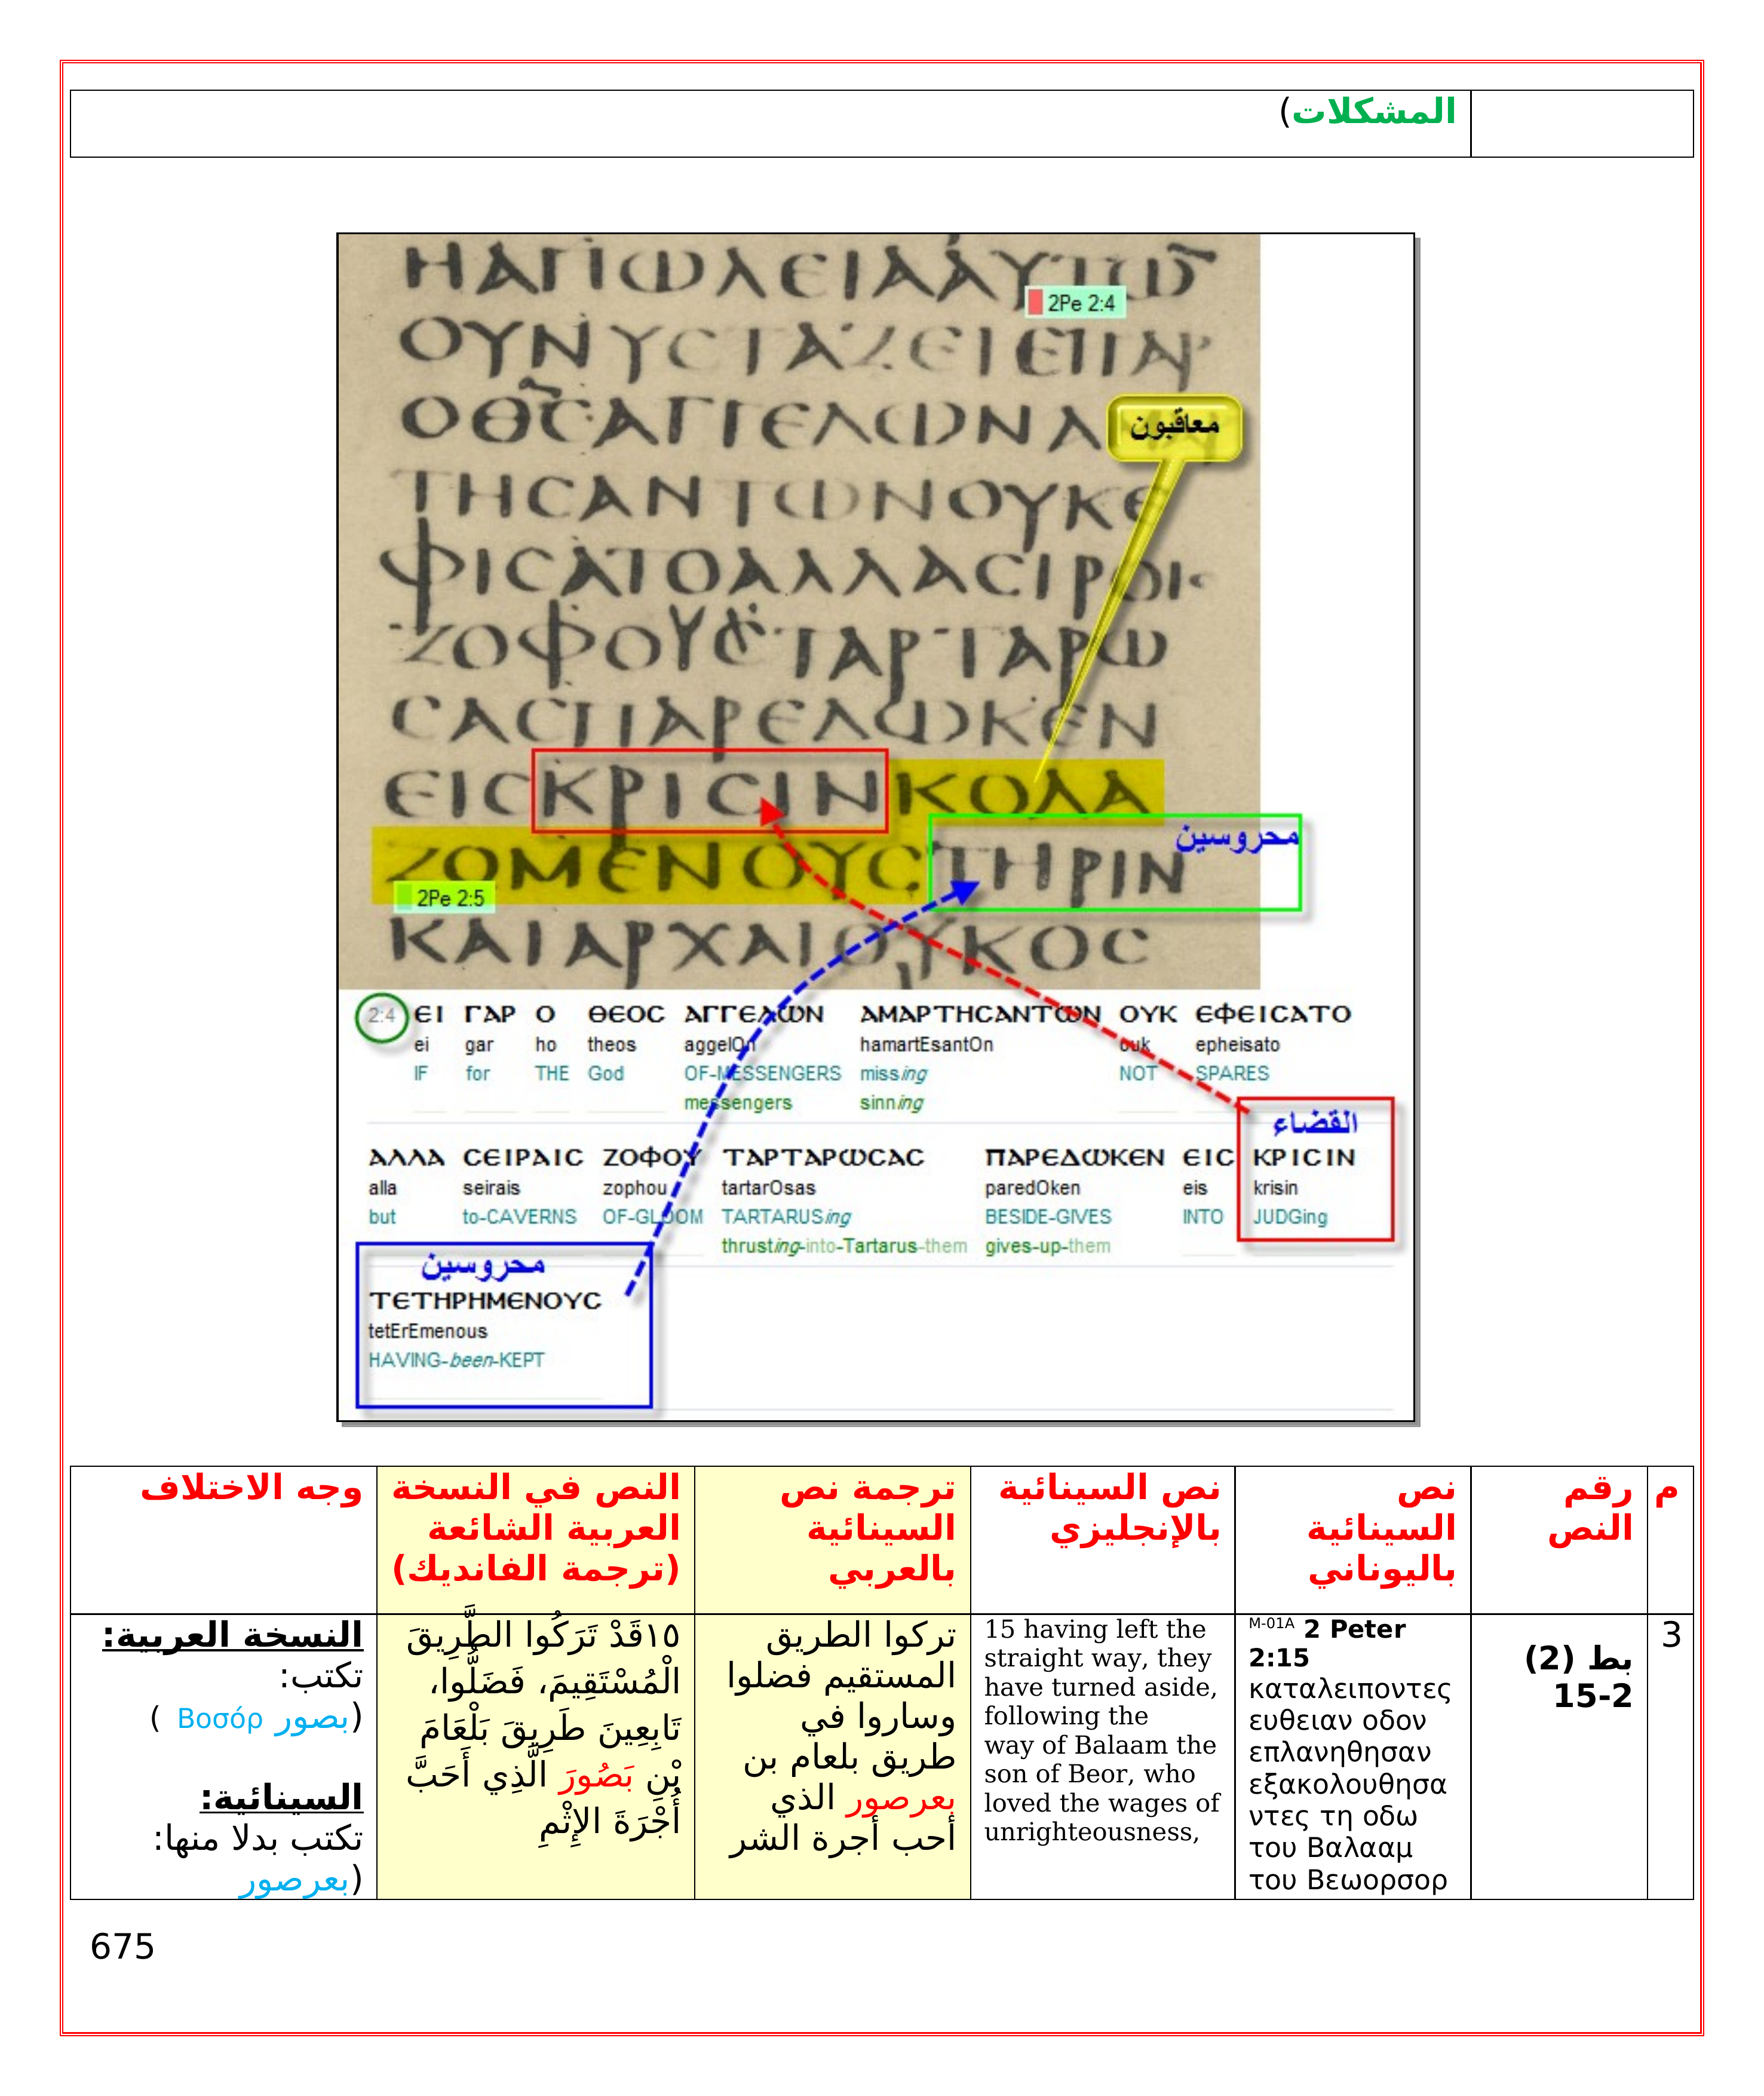 المشكلات)
ΗΑΠΩΛΕΙΑΑΥΤΩ
2Pe 2:4
ΟΥΝΥCΤΑΖΕΙΕΙΓΑΡ
ΟΘCΑΓΓΕΛΩΝΑ
معاقبون
ΤΗCΑΝΤΩΝΟΥΚΕ
ΦΙCΑΤΟΑΛΛΑCΙΡΟΙ
ΖΟΦΟΥC ΤΑΡΤΑΡΩ
CΑCΠΑΡΕΔΩΚΕΝ
ΕΙCΚΡΙCΙΝΚΟΛΑ
محروسين
ΖΟΜΕΝΟΥCΤΗΡΙΝ
2Pe 2:5
ΚΑΙΑΡΧΑΙΟΥΚΟC
2:4 ΕΙ ΓΑΡ Ο ΘΕΟC ΑΓΓΕΛΩΝ ΑΜΑΡΤΗCΑΝΤΩΝ ΟΥΚ ΕΦΕΙCΑΤΟ
ei gar ho theos aggelOn hamartEsantOn ouk epheisato
IF for THE God OF-MESSENGERS missing NOT SPARES
messengers sinning
القضاء
ΑΛΛΑ CΕΙΡΑΙC ΖΟΦΟΥ ΤΑΡΤΑΡΩCΑC ΠΑΡΕΔΩΚΕΝ ΕΙC ΚΡΙCΙΝ
alla seirais zophou tartarOsas paredOken eis krisin
but to-CAVERNS OF-GLOOM TARTARUSing BESIDE-GIVES INTO JUDGing
thrusting-into-Tartarus-them gives-up-them
محروسين
ΤΕΤΗΡΗΜΕΝΟΥC
tetErEmenous
HAVING-been-KEPT
م
رقم
النص
نص
السينائية
باليوناني
نص السينائية
بالإنجليزي
ترجمة نص
السينائية
بالعربي
النص في النسخة
العربية الشائعة
(ترجمة الفانديك)
وجه الاختلاف
3
بط (2)
15-2
M-01A 2 Peter
2:15
καταλειποντες
ευθειαν οδον
επλανηθησαν
εξακολουθησα
ντες τη οδω
του Βαλααμ
του Βεωορσορ
15 having left the
straight way, they
have turned aside,
following the
way of Balaam the
son of Beor, who
loved the wages of
unrighteousness,
تركوا الطريق
المستقيم فضلوا
وساروا في
طريق بلعام بن
بعرصور الذي
أحب أجرة الشر
١٥قَدْ تَرَكُوا الطَّرِيقَ
الْمُسْتَقِيمَ، فَضَلُّوا،
تَابِعِينَ طَرِيقَ بَلْعَامَ
بْنِ بَصُورَ الَّذِي أَحَبَّ
أُجْرَةَ الإِثْمِ
النسخة العربية:
تكتب:
(بصور Βοσόρ )
السينائية:
تكتب بدلا منها:
(بعرصور
675